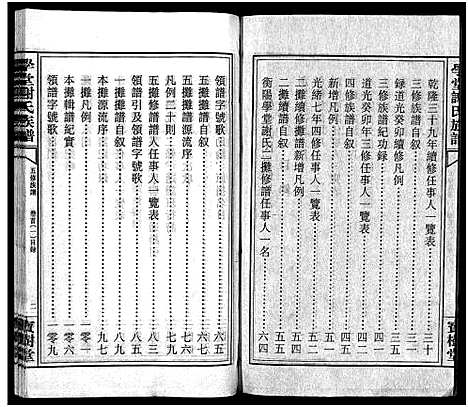 學堂謝氏族譜
乾隆三十九年續修任事人一覽表 三十
三修續修凡例 三五
錄道光癸卯年三修任事人一覽表
四修族譜紀功錄
四修族譜自叙 四五
新增凡例
光緒七年四修任事人一覽表
二攤續譜自叙 五五
二攤續修攤譜新增凡例
衡陽學堂謝氏二攤修譜任事人一名 六四
寶樹堂
領譜字號歌 六五
五攤續譜自叙 六七
五攤譜源流序 七五
凡例二十則 七九
五攤修譜譜人任事人一覽表 八三
領譜引及領譜字號歌
本攤譜自叙
本攤源流序 九七
一攤凡例 一〇一
本攤輯譜紀實 一〇六
領譜字號歌 一〇九
學堂謝氏族譜
五修族譜 卷首(一)目錄 二
寶樹堂